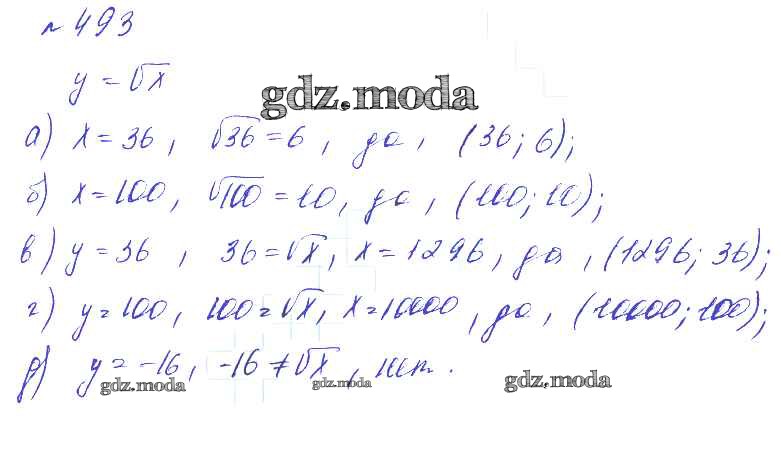 № 493
y = √x
gdz.moda
а) x = 36, √36 = 6, да, (36; 6);
б) x = 100, √100 = 10, да, (100; 10);
в) y = 36, 36 = √x, x = 1296, да, (1296; 36);
г) y = 100, 100 = √x, x = 10000, да, (10000; 100);
д) y = -16, -16 ≠ √x, нет.
gdz.moda gdz.moda gdz.moda